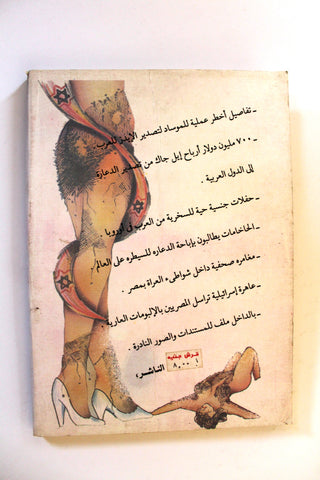 ـ تفاصيل أخطر عملية للموساد لتصدير الإيدز للعرب.
ـ ٧٠٠ مليون دولار أرباح إيل جاك من تصدير الدعارة
إلى الدول العربية .
ـ حفلات جنسية حية للسخرية من العرب فى أوروبا .
ـ الحاخامات يطالبون بإباحة الدعاره للسيطره على العالم .
ـ مغامره صحفية داخل شواطىء العراة بمصر .
ـ عاهرة إسرائيلية تراسل المصريين بالإلبومات العارية .
ـ بالداخل ملف للمستندات والصور النادرة .
قرش جنيه
٨,٠٠
الناشر،